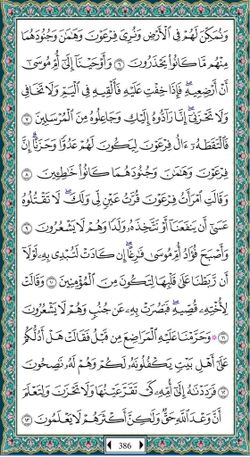 وَنُمَكِّنَ لَهُمْ فِي ٱلْأَرْضِ وَنُرِيَ فِرْعَوْنَ وَهَٰمَٰنَ وَجُنُودَهُمَا
مِنْهُم مَّا كَانُوا۟ يَحْذَرُونَ ٦ وَأَوْحَيْنَآ إِلَىٰٓ أُمِّ مُوسَىٰٓ
أَنْ أَرْضِعِيهِ ۖ فَإِذَا خِفْتِ عَلَيْهِ فَأَلْقِيهِ فِي ٱلْيَمِّ وَلَا تَخَافِي
وَلَا تَحْزَنِيٓ ۖ إِنَّا رَآدُّوهُ إِلَيْكِ وَجَاعِلُوهُ مِنَ ٱلْمُرْسَلِينَ ٧
فَٱلْتَقَطَهُۥٓ ءَالُ فِرْعَوْنَ لِيَكُونَ لَهُمْ عَدُوًّا وَحَزَنًا ۗ إِنَّ
فِرْعَوْنَ وَهَٰمَٰنَ وَجُنُودَهُمَا كَانُوا۟ خَٰطِـِٔينَ ٨
وَقَالَتِ ٱمْرَأَتُ فِرْعَوْنَ قُرَّتُ عَيْنٍ لِّي وَلَكَ ۖ لَا تَقْتُلُوهُ
عَسَىٰٓ أَن يَنفَعَنَآ أَوْ نَتَّخِذَهُۥ وَلَدًا وَهُمْ لَا يَشْعُرُونَ ٩
وَأَصْبَحَ فُؤَادُ أُمِّ مُوسَىٰ فَٰرِغًا ۖ إِن كَادَتْ لَتُبْدِي بِهِۦ لَوْلَآ
أَن رَّبَطْنَا عَلَىٰ قَلْبِهَا لِتَكُونَ مِنَ ٱلْمُؤْمِنِينَ ١٠ وَقَالَتْ
لِأُخْتِهِۦ قُصِّيهِ ۖ فَبَصُرَتْ بِهِۦ عَن جُنُبٍ وَهُمْ لَا يَشْعُرُونَ
١١ ۞ وَحَرَّمْنَا عَلَيْهِ ٱلْمَرَاضِعَ مِن قَبْلُ فَقَالَتْ هَلْ أَدُلُّكُمْ
عَلَىٰٓ أَهْلِ بَيْتٍ يَكْفُلُونَهُۥ لَكُمْ وَهُمْ لَهُۥ نَٰصِحُونَ
١٢ فَرَدَدْنَٰهُ إِلَىٰٓ أُمِّهِۦ كَيْ تَقَرَّ عَيْنُهَا وَلَا تَحْزَنَ وَلِتَعْلَمَ
أَنَّ وَعْدَ ٱللَّهِ حَقٌّ وَلَٰكِنَّ أَكْثَرَهُمْ لَا يَعْلَمُونَ ١٣
386